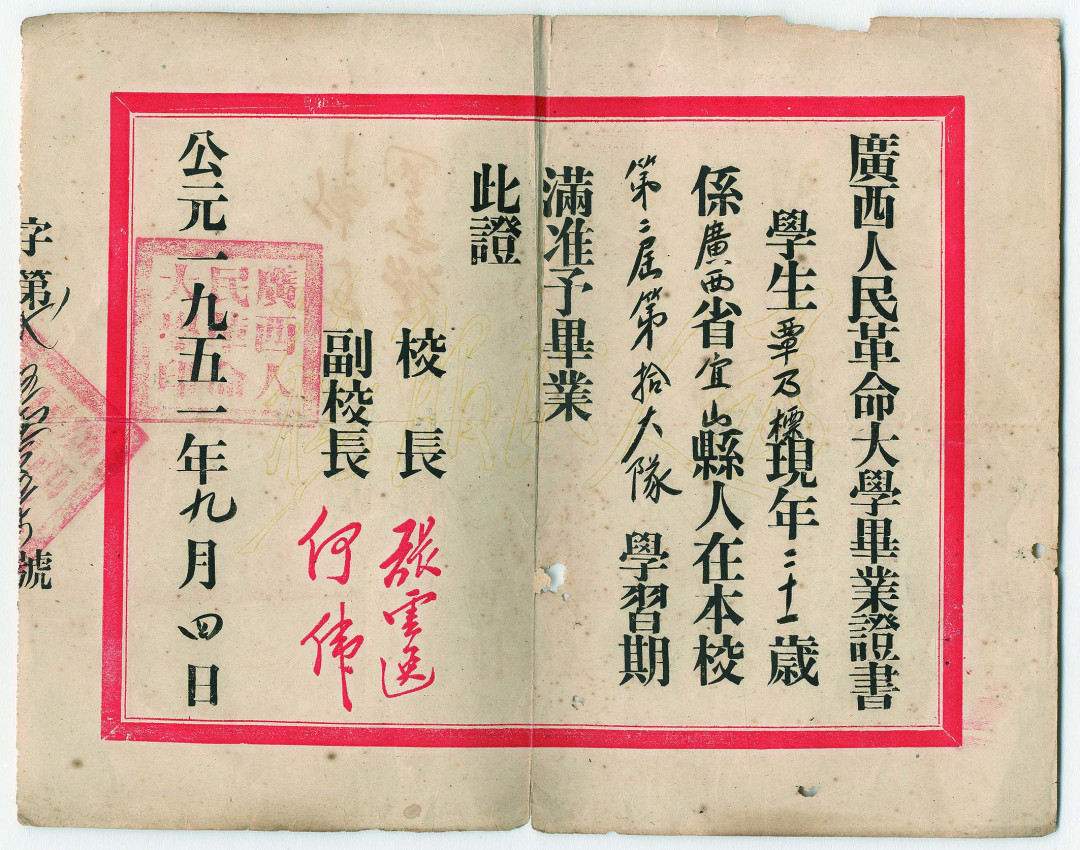 廣西人民革命大學畢業證書
學生覃乃標現年二十一歲
係廣西省宜山縣人在本校
第二屆第拾大隊學習期
滿准予畢業
此證
校長 張雲逸
副校長 何偉
公元一九五一年九月四日
廣西人民革命大學印
字第號